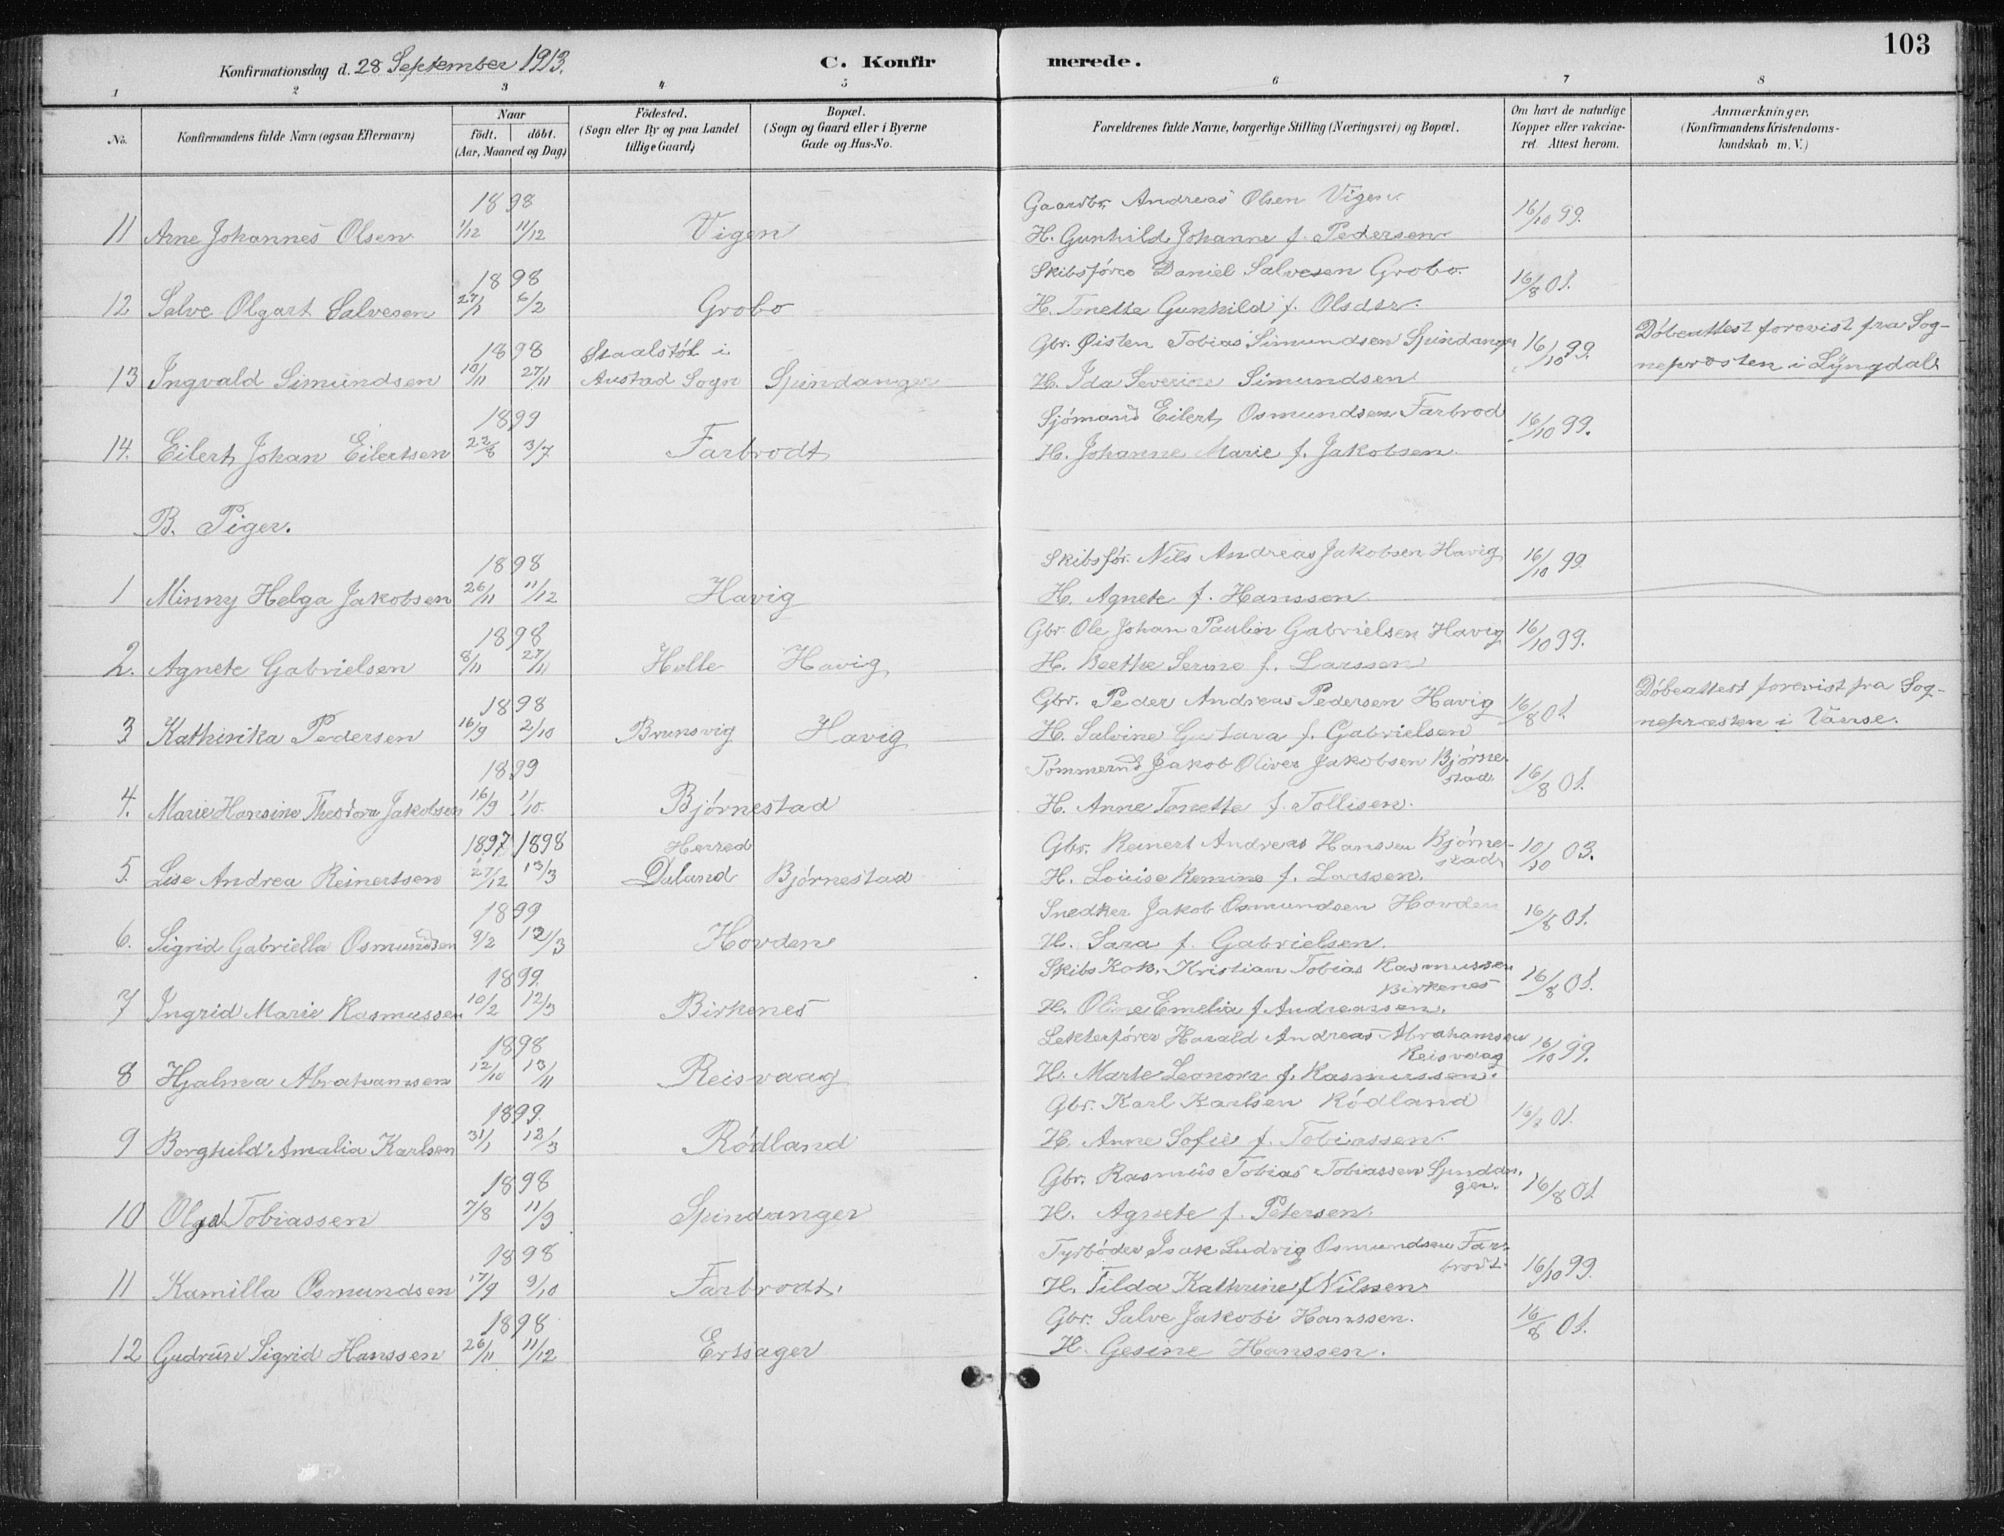 103
Konfirmationsdag d. 28 September 1913.
C. Konfirmerede.
1 2 3 4 5 6 7 8
No. Konfirmandens fulde Navn (ogsaa Efternavn) Naar födt. döbt. (Aar, Maaned og Dag) Födested. (Sogn eller By og paa Landet tillige Gaard) Bopæl. (Sogn og Gaard eller i Byerne Gade og Hus-No. Forældrenes fulde Navne, borgerlige Stilling (Næringsvei) og Bopæl. Om havt de naturlige Kopper eller vakcineret. Attest herom. Anmærkninger. (Konfirmandens Kristendomskundskab m. V.)
1898 Gaardbr. Andreas Olsen Vigen.
11 Arne Johannes Olsen 1/12 11/12 Vigen H. Gunhild Johanne f. Pedersen 16/10 99.
1898 Skibsförer Daniel Salvesen Grobo.
12 Salve Olgart Salvesen 27/1 6/2 Grobo H. Tonette Gunhild f. Olsdtr. 16/8 01.
1898 Staalstöl i Gbr. Øisten Tobias Simundsen Spindanger 16/10 99. Döbeattest forevist fra Sog-
13 Ingvald Simundsen 10/11 27/11 Austad Sogn Spindanger H. Ida Severine Simundsen nepresten i Lyngdal
1899 Sjömand Eilert Osmundsen Farbrod
14. Eilert Johan Eilertsen 22/6 3/7 Farbrodt H. Johanne Marie f. Jakobsen 16/10 99.
B. Piger.
1898 Skibsför. Nils Andreas Jakobsen Havig
1 Minny Helga Jakobsen 26/11 11/12 Havig H. Agnete f. Hanssen 16/10 99.
1898 Gbr. Ole Johan Paulin Gabrielsen Havig
2. Agnete Gabrielsen 8/11 27/11 Helle Havig H. Beethe Serine f. Larssen 16/10 99.
1898 Gbr. Peder Andreas Pedersen Havig 16/8 01. Döbeattest forevist fra Sog-
3 Kathinka Pedersen 16/9 2/10 Brunsvig Havig H. Salvine Gustava f. Gabrielsen nepræsten i Vanse.
1899 Tömmermd Jakob Oliver Jakobsen Björne-
stad
4. Marie Hansine Theodora Jakobsen 16/9 1/10. Björnestad H. Anne Tonette f. Tollisen. 16/8 01.
1897 1898 Herred Gbr. Reinert Andreas Hanssen Björne-
stad
5. Lise Andrea Reinertsen 27/12 13/3 Daland Björnestad H. Louise Remine f. Larssen. 10/10 03.
1899 Snedker Jakob Osmundsen Hovden
6. Sigrid Gabriella Osmundsen 9/2 12/3 Hovden H. Sara f. Gabrielsen. 16/8 01.
1899. Skibs Kok. Kristian Tobias Rasmussen
Birkenes
7 Ingrid Marie Rasmussen 10/2 12/3 Birkenes H. Oline Emelia f. Andreassen. 16/8 01.
1898 Lekterförer Harald Andreas Abrahamsen
Reisvaag
8 Hjalma Abrahamsen 12/10 13/11 Reisvaag H. Marte Leonora f. Rasmussen. 16/10 99.
1899. Gbr. Karl Karlsen Rödland
9 Borghild Amalia Karlsen 31/1 12/3 Rödland H. Anne Sofie f. Tobiassen. 16/8 01.
1898 Gbr. Rasmus Tobias Tobiassen Spindan-
ger.
10 Olga Tobiassen 7/8 11/9 Spindanger H. Agnete f. Petersen. 16/8 01.
1898 Fyrböder Isak Ludvig Osmundsen Far-
brodt.
11 Kamilla Osmundsen 17/9 9/10 Farbrodt. H. Tilda Kathrine f Nilssen 16/10 99.
1898 Gbr. Salve Jakobi Hanssen.
12 Gudrun Sigrid Hanssen 26/11 11/12 Ersager H. Gesine Hanssen. 16/8 01.